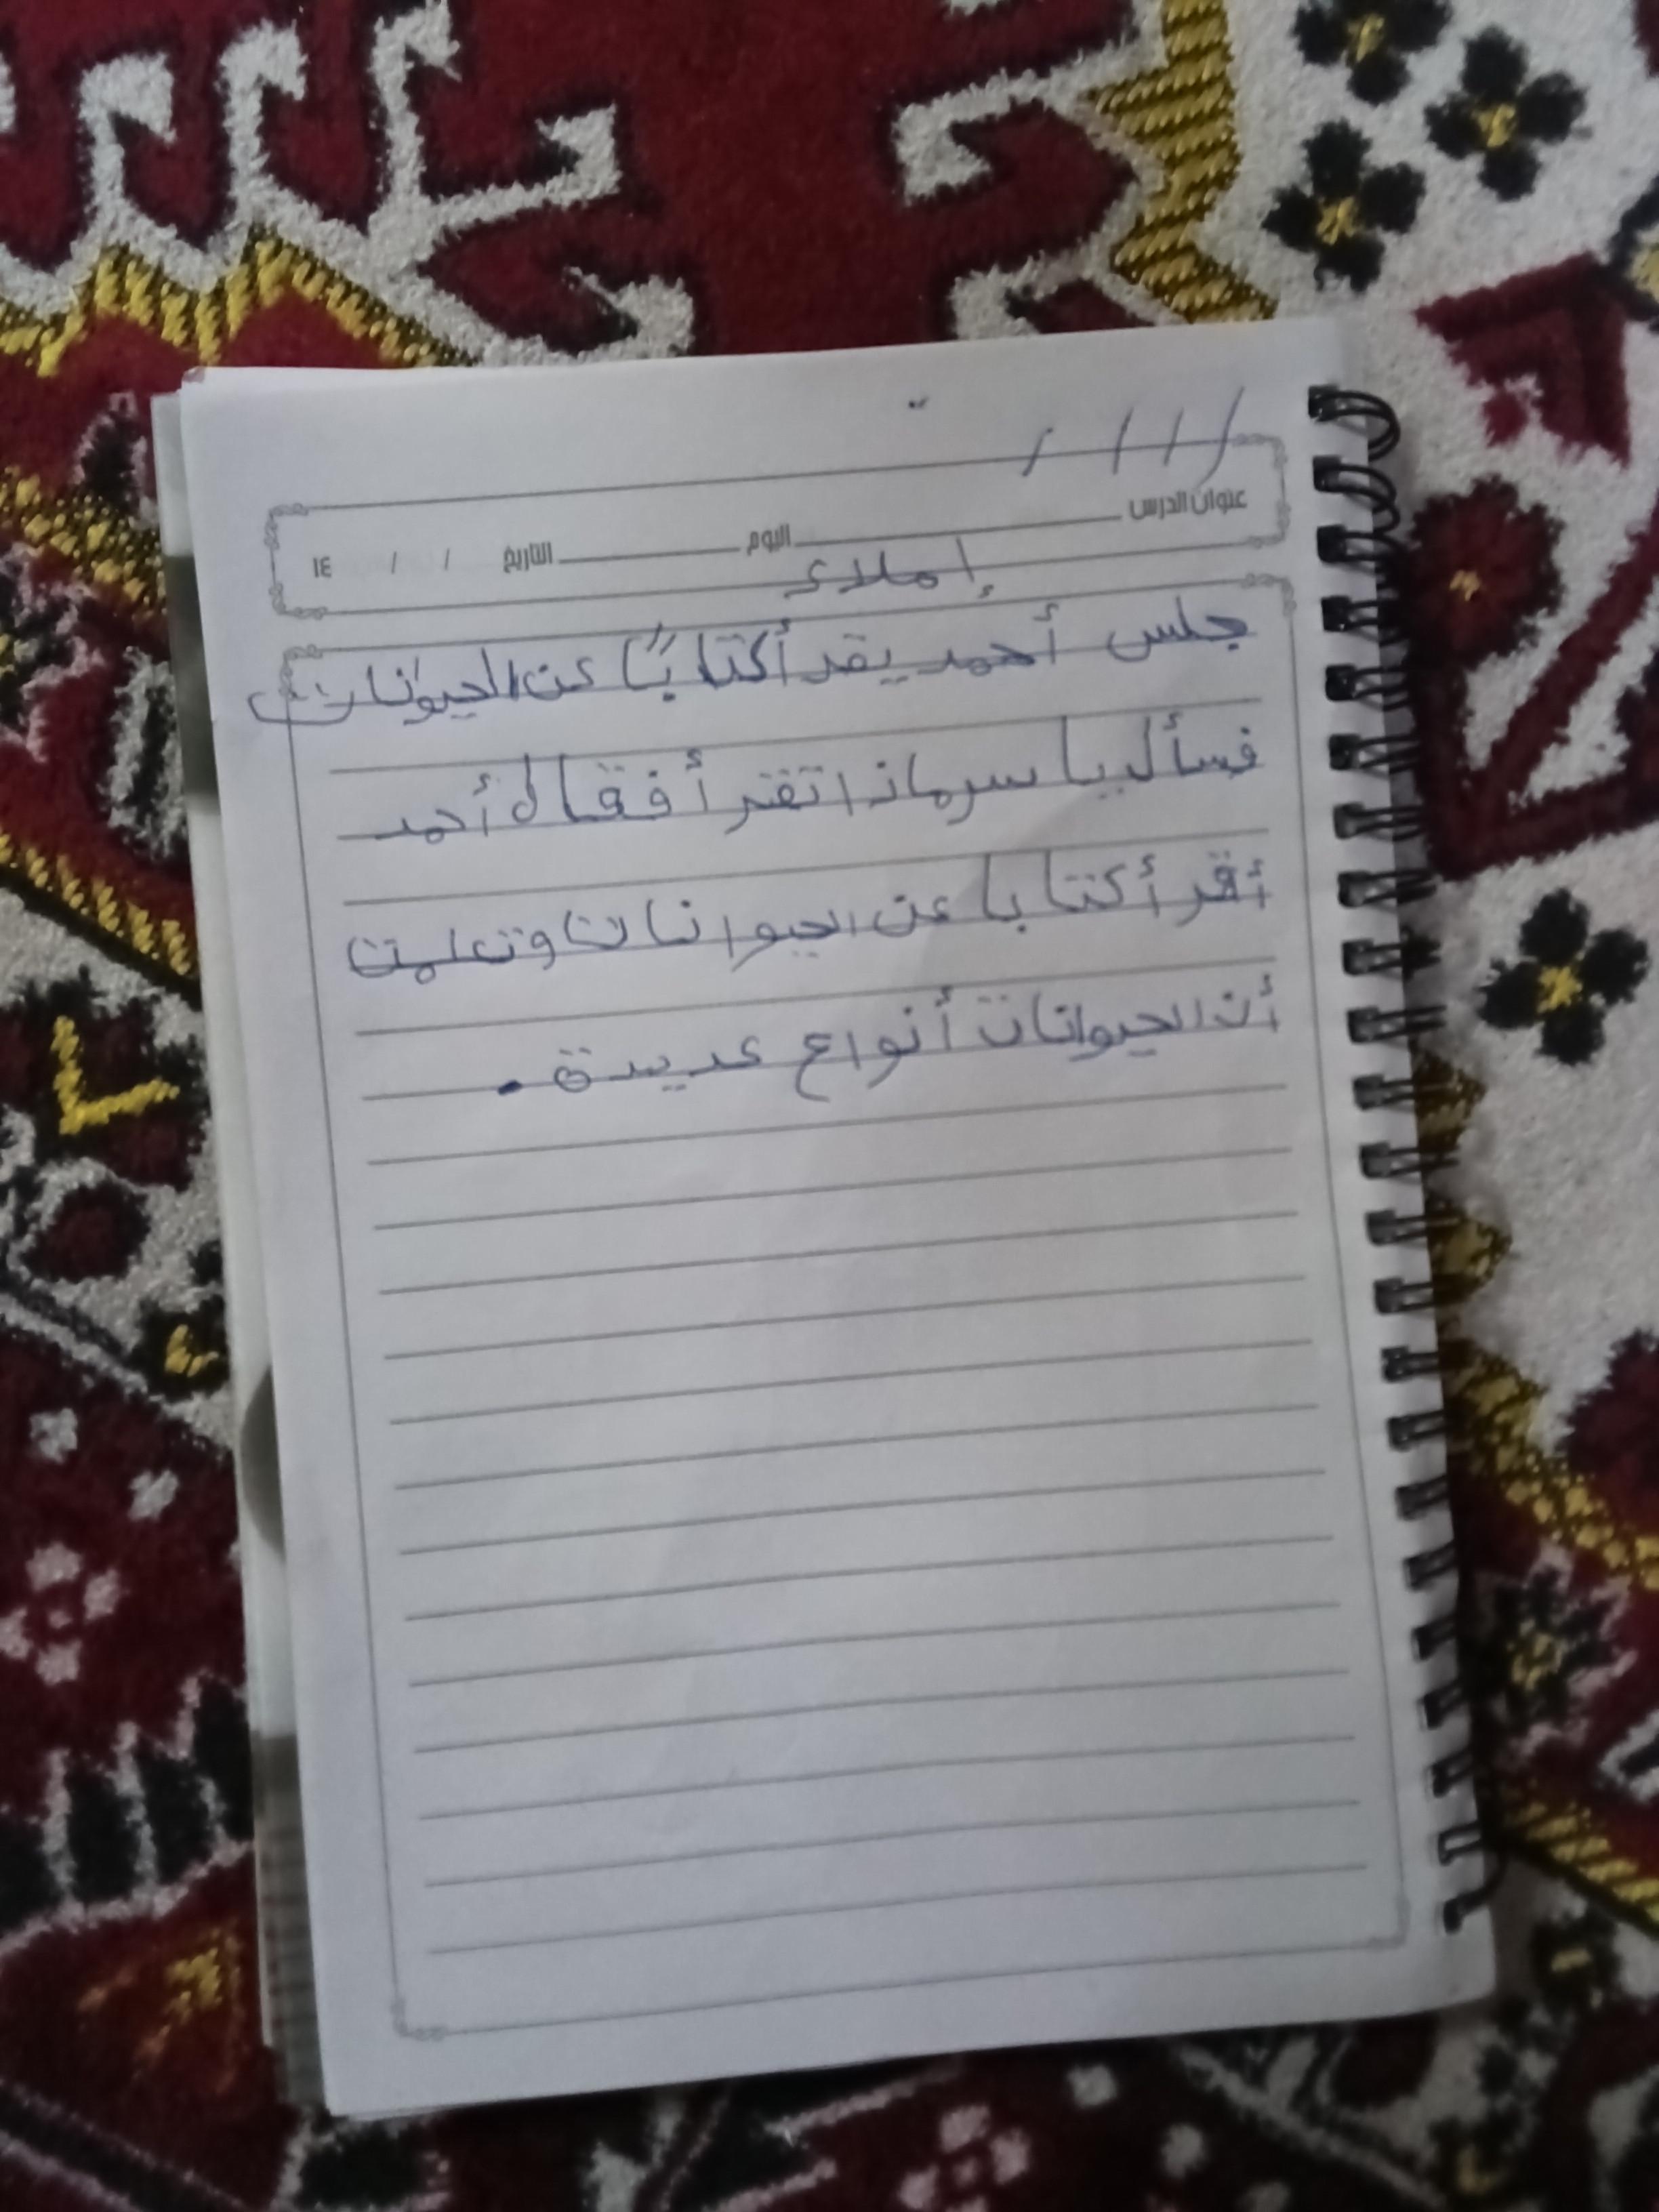 عنوان الدرس اليوم التاريخ / / ١٤
إملاء
جلس أحمد يقرأ كتاباً عن الحيوانات
فسأل ياسر ماذا تقرأ فقال أحمد
أقرأ كتابا عن الحيوانات وتعلمت
أن الحيوانات أنواع عديدة .